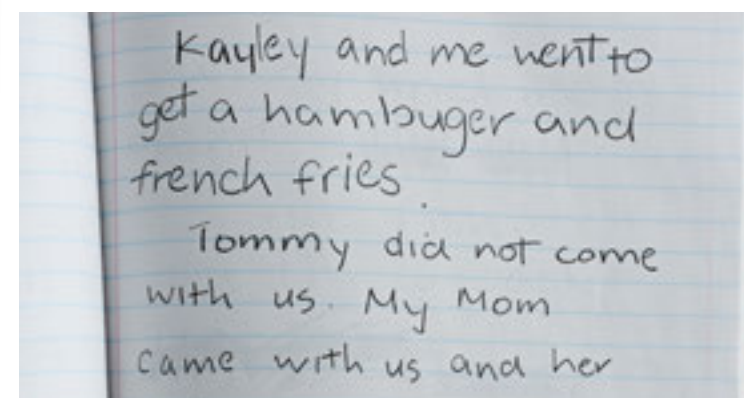 Kayley and me went to
get a hambuger and
french fries.
Tommy did not come
with us. My Mom
came with us and her